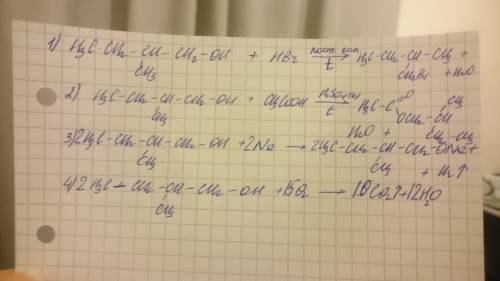 1) H₃C-CH₂-CH-CH₂-OH + HBr t H₃C-CH₂-CH-CH₃ +
CH₃ CH₂Br + H₂O
2) H₃C-CH₂-CH-CH₂-OH + CH₃COOH H₂SO₄(к) t H₃C-C O CH₃
CH₃ OCH₂-CH
H₂O + CH₂-CH₃
3) 2H₃C-CH₂-CH-CH₂-OH + 2Na → 2H₃C-CH₂-CH-CH₂-ONa +
CH₃ CH₃ + H₂↑
4) 2H₃C-CH₂-CH-CH₂-OH + 15O₂ → 10CO₂↑ + 12H₂O
CH₃